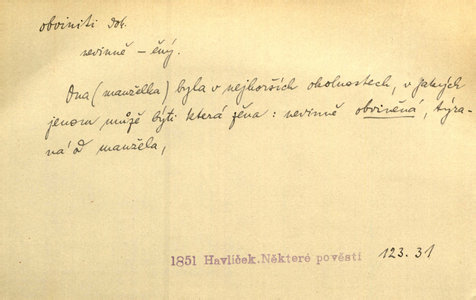 obviniti dok.
nevinně – ěný.
Ona (manželka) byla v nejhorších okolnostech, v jakých
jenom může býti která žena: nevinně obviněná, týra-
ná od manžela,
1851 Havlíček. Některé pověsti 123. 31